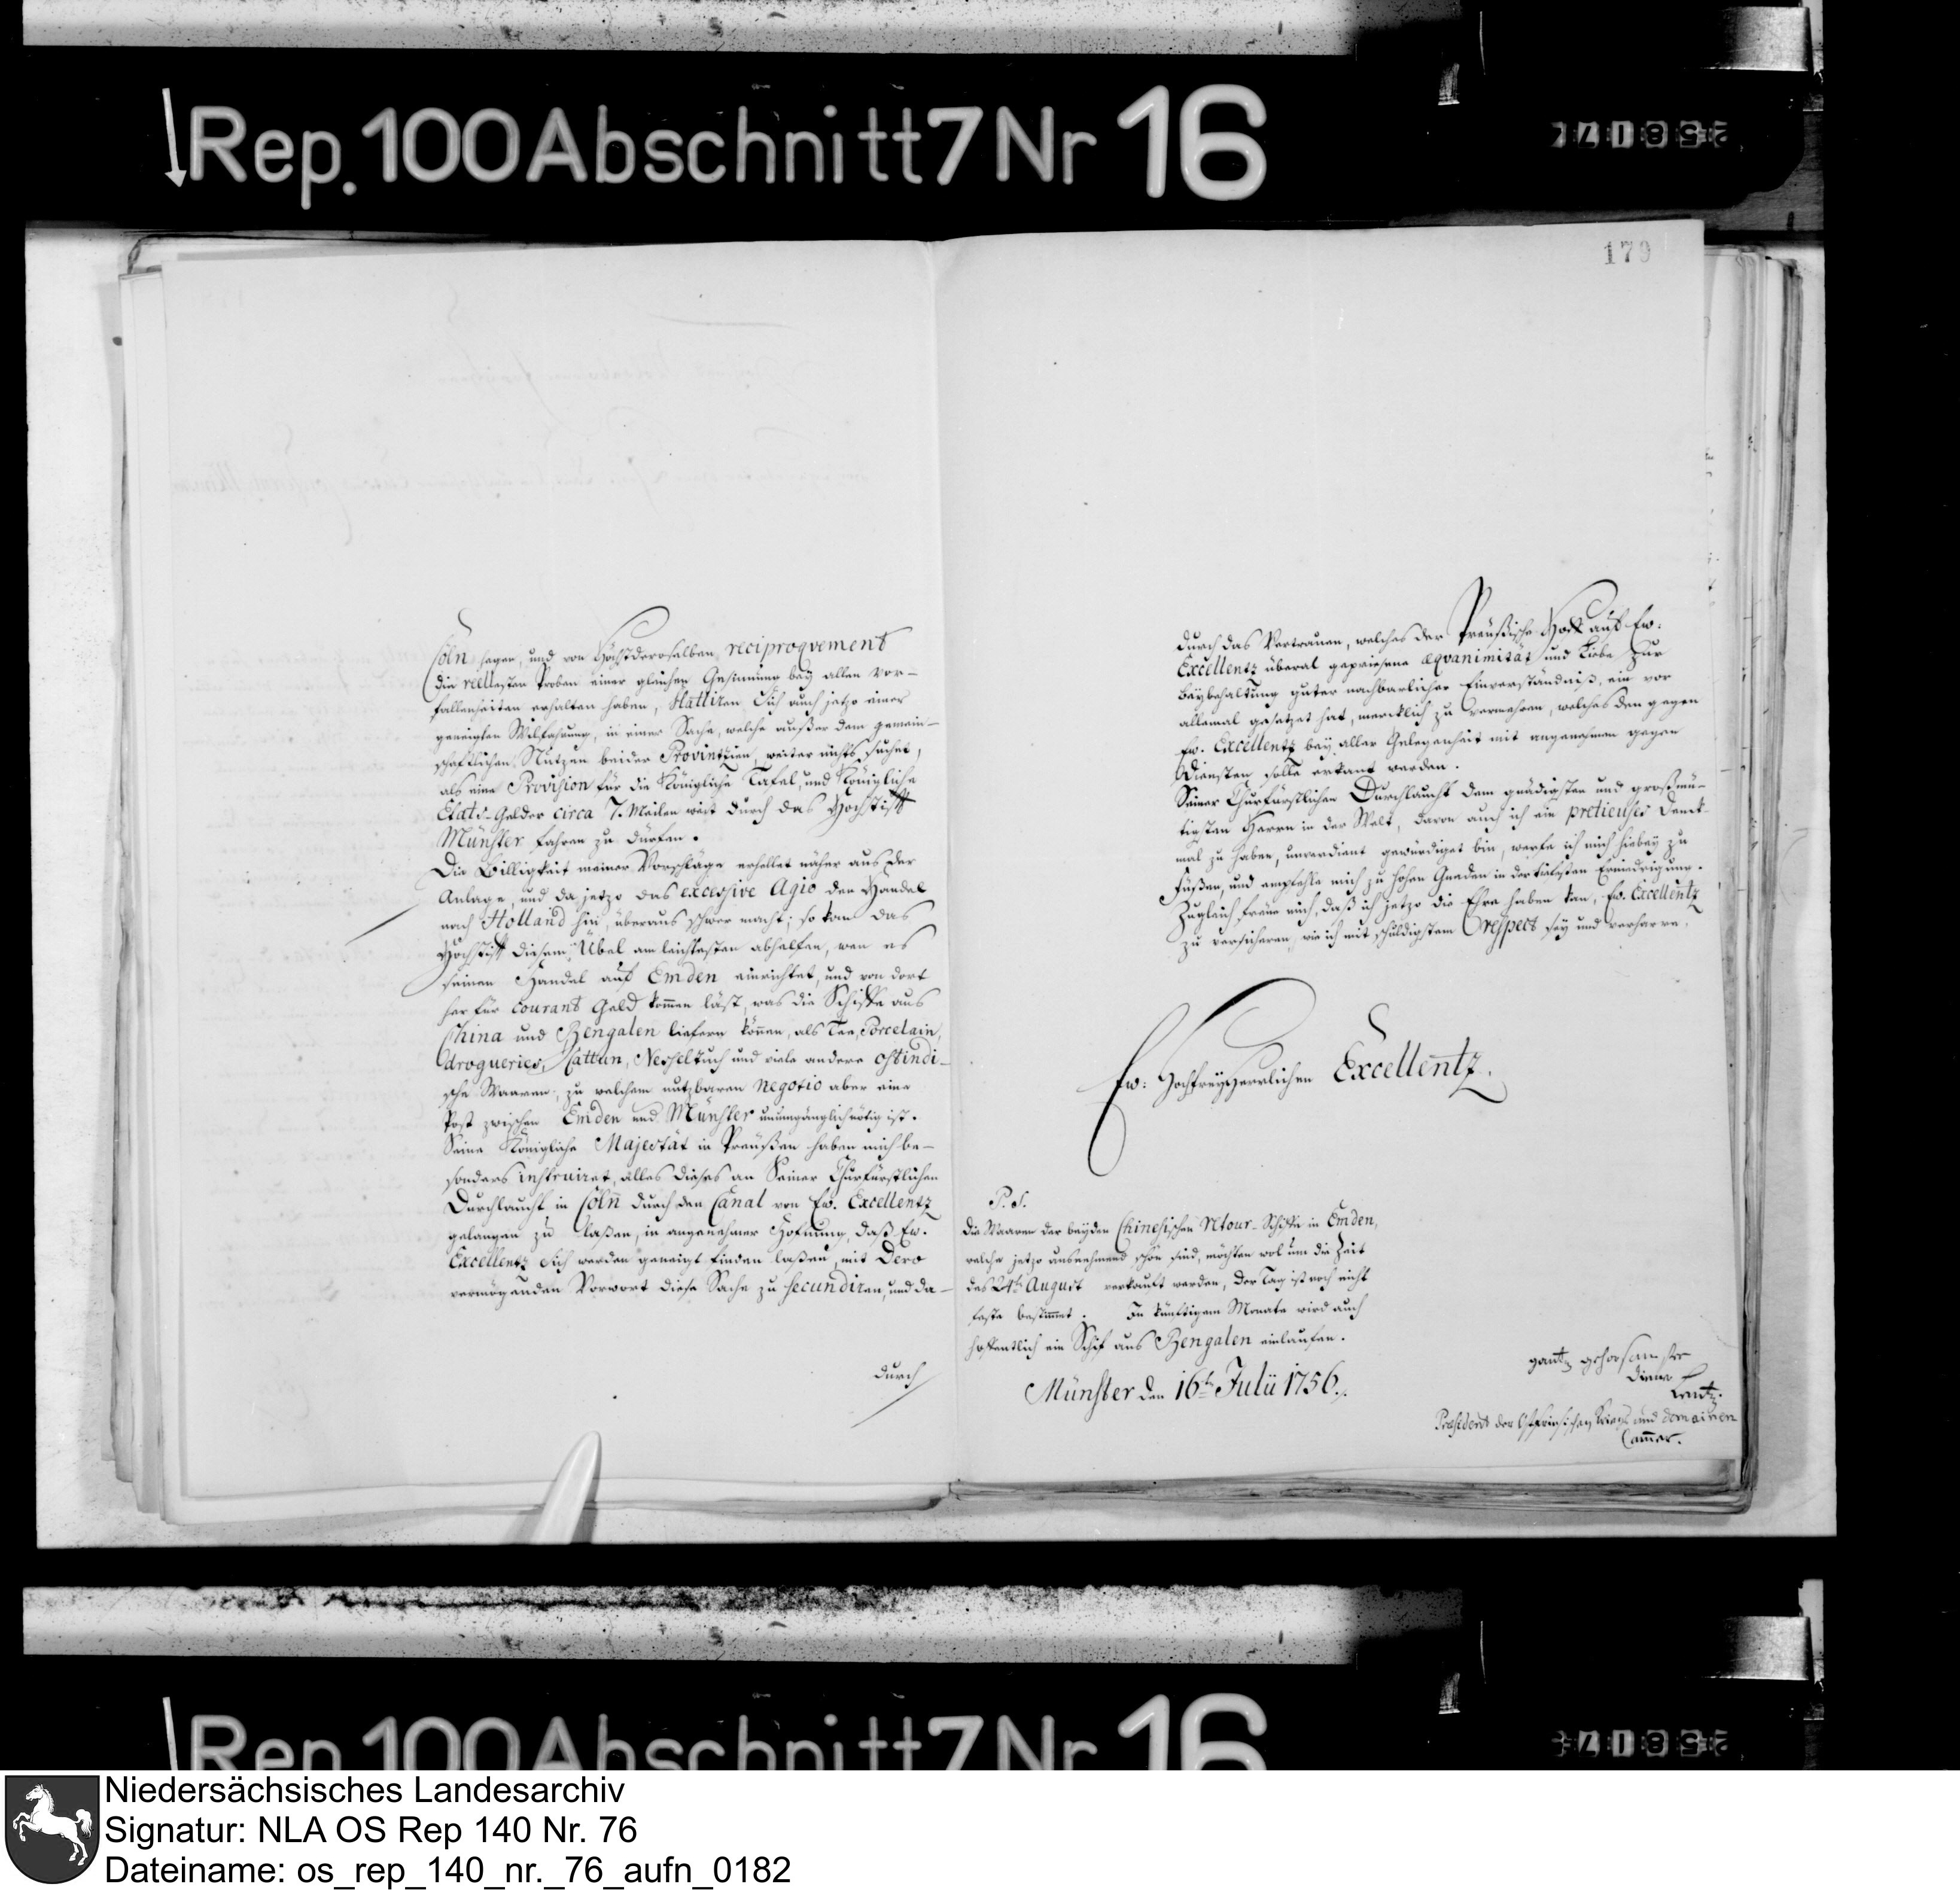 Rep. 100 Abschnitt 7 Nr 16
179
Cöln hegen, und von Höchstderoselben reciproquement
die reellesten Proben einer gleichen Gesinnung bey allen vor-
fallenheiten erhalten haben, flattiren Sich auch jetzo einer
geneigten Wilfahrung, in einer Sache, welche außer dem gemein-
schaftlichen Nutzen beider Provintzien, weiter nichts suchet,
als eine Provision für die Königliche Tafel, und Königliche
Etats-Gelder circa 7. Meilen weit durch das Hochstifft
Münster fahren zu dürfen.
Die Billigkeit meiner Vorschläge erhellet näher aus der
Anlage, und da jetzo das excessive Agio den Handel
nach Holland hin, überaus schwer macht; so kan das
Hochstifft diesem Übel am leichtesten abhelfen, wen es
seinen Handel auf Emden einrichtet, und von dort
her für courant Geld kom̅en läst, was die Schiffe aus
China und Bengalen liefern kön̅en, als Tee, Porcelain,
drogueries, Cattun, Nesseltuch und viele andere ostindi-
sche Waaren; zu welchem nutzbaren negotio aber eine
Post zwischen Emden und Münster unumgänglich nötig ist.
Seine Königliche Majestät in Preußen haben mich be-
sonders instruiret, alles dieses an Seiner Churfürstlichen
Durchlaucht in Cöln durch den Canal von Ew. Excellentz
gelangen zu laßen, in angenehmer Hofnung, daß Ew.
Excellentz Sich werden geneigt finden laßen, mit Dero
vermögenden Vorwort diese Sache zu secundiren, und da-
durch
durch das Vertrauen, welches der Preußische Hof auf Ew.
Excellentz überal gepriesene æqvanimität und Liebe zur
Beybehaltung guter nachbarlicher Einverständniß, ein vor
allemal gesetzet hat, mercklich zu vermehren, welches den gegen
Ew. Excellentz bey aller Gelegenheit mit angenehmen gegen
Diensten solle erkant werden.
Seiner Churfürstlichen Durchlaucht dem gnädigsten und großmü-
tigsten Herrn in der Welt, davon auch ich ein pretieuses Denck-
mal zu haben, unverdient gewürdiget bin, werfe ich mich hiebey zu
Füßen, und empfehle mich zu hohen Gnaden in der tiefesten Erniedrigung.
Zugleich freue mich, daß ich jetzo die Ehre haben kan, Ew. Excellentz
zu versicheren, wie ich mit schuldigstem respect sey und verharre,
Ew: Hochfreyherrlichen Excellentz.
P. S.
Die Waaren der beyden Chinesischen retour-Schiffe in Emden,
welche jetzo ausnehmend schön sind, möchten wol um die Zeit
des 24th August verkauft werden, der Tag ist noch nicht
feste bestim̅et. Im künftigem Monate wird auch
hoffentlich ein Schif aus Bengalen einlaufen.
Münster den 16th Julii 1756.
gantz gehorsamster
Diener
Lentz.
Præsident der Ostfriesischen Krieges und domainen
Cam̅er.
Rep. 100 Abschnitt 7 Nr 16
Niedersächsisches Landesarchiv
Signatur: NLA OS Rep 140 Nr. 76
Dateiname: os_rep_140_nr._76_aufn_0182